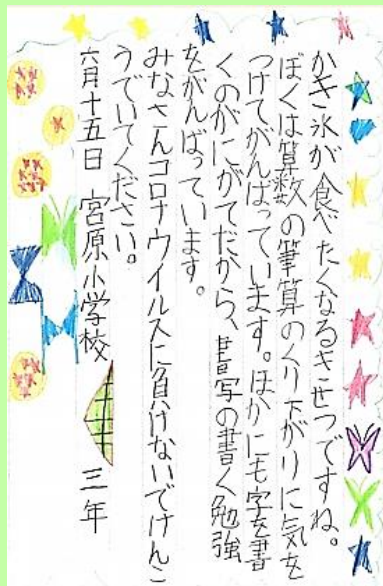 かき氷が食べたくなるきせつですね。
ぼくは算数の筆算のくり下がりに気を
つけてがんばっています。ほかにも字を書
くのがにがてだから、書写の書く勉強
をがんばっています。
みなさんコロナウイルスに負けないでけんこ
うでいてください。
六月十五日 宮原小学校 三年